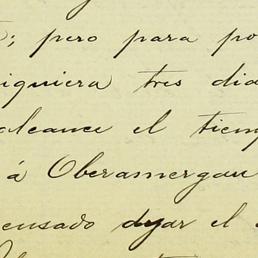 ; pero para po
iquiera tres dia
alcance el tiemp
á Oberamergau
ensado dejar el